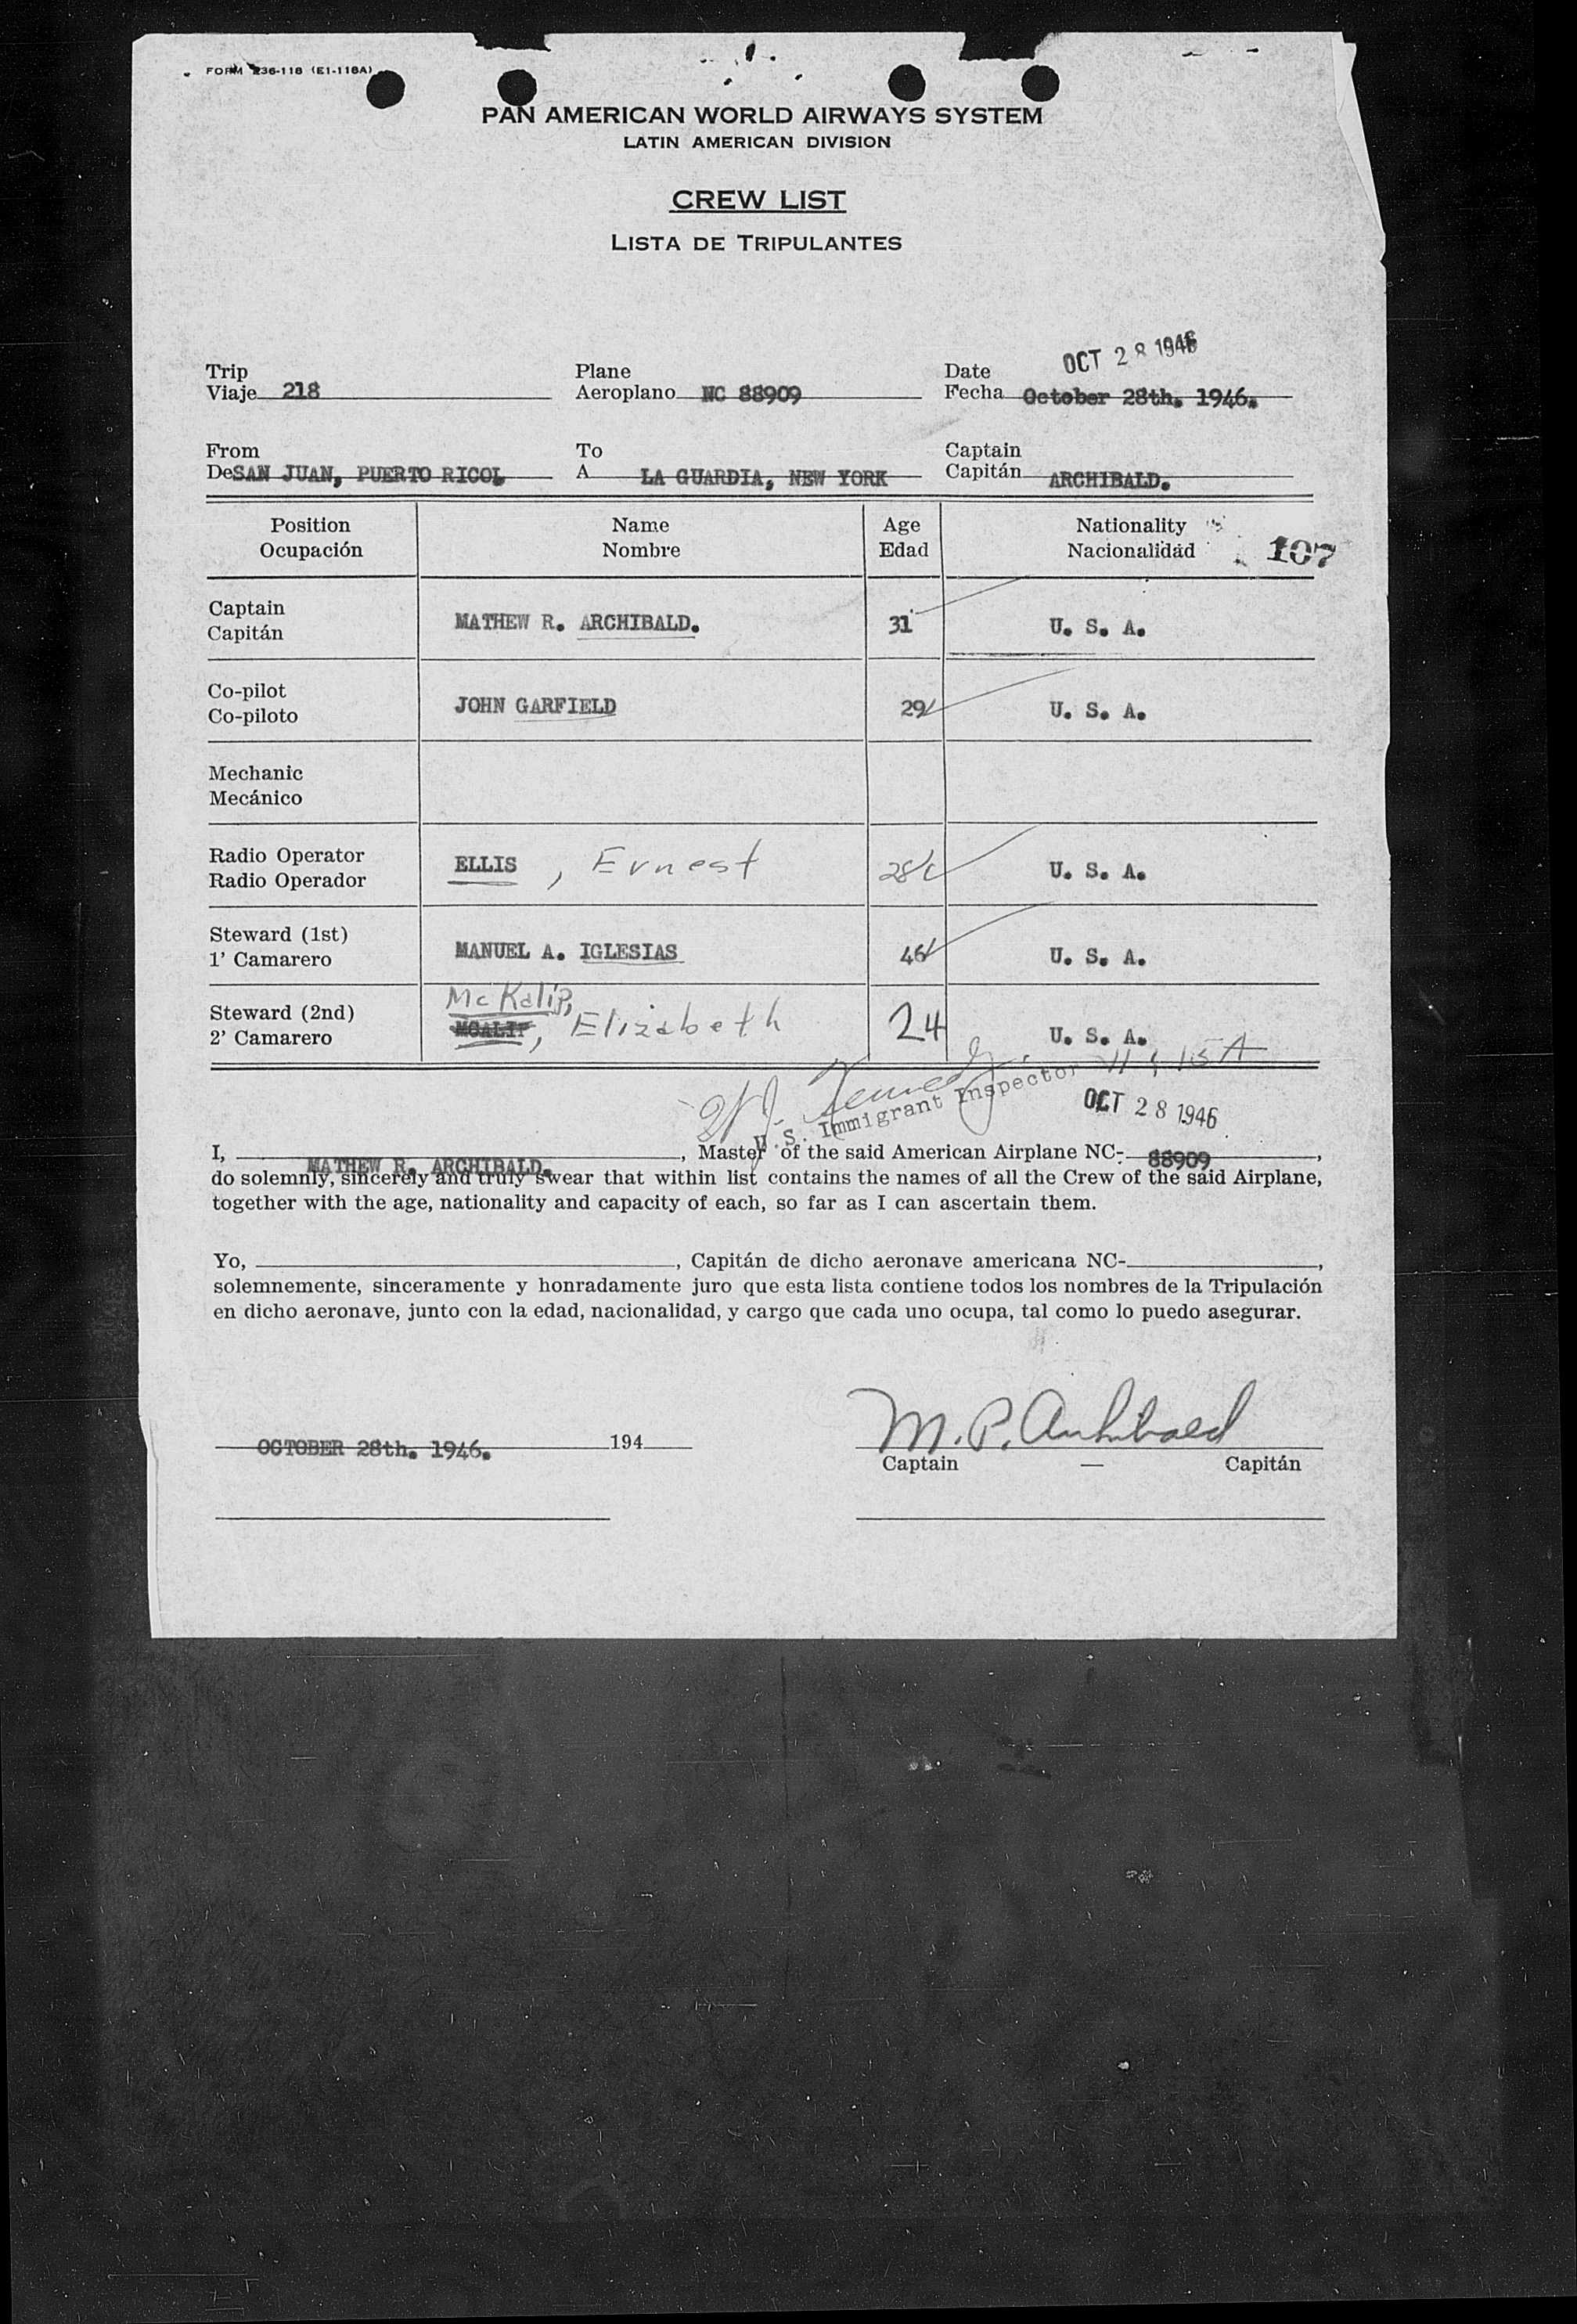 FORM 236-118 (E1-118A)
PAN AMERICAN WORLD AIRWAYS SYSTEM
LATIN AMERICAN DIVISION
CREW LIST
LISTA DE TRIPULANTES
OCT 28 1946
Trip Plane Date
Viaje 218 Aeroplano NC 88909 Fecha October 28th. 1946.
From To Captain
De SAN JUAN, PUERTO RICO. A LA GUARDIA, NEW YORK Capitán ARCHIBALD.
Position Name Age Nationality
Ocupación Nombre Edad Nacionalidad 107
Captain
Capitán MATHEW R. ARCHIBALD. 31 U. S. A.
Co-pilot
Co-piloto JOHN GARFIELD 29 U. S. A.
Mechanic
Mecánico
Radio Operator
Radio Operador ELLIS, Ernest 28 U. S. A.
Steward (1st)
1' Camarero MANUEL A. IGLESIAS 46 U. S. A.
McKalip,
Steward (2nd)
2' Camarero MCALIP, Elizabeth 24 U. S. A.
11:15 A
U.S. Immigrant Inspector
OCT 28 1946
I, MATHEW R. ARCHIBALD., Master of the said American Airplane NC-88909,
do solemnly, sincerely and truly swear that within list contains the names of all the Crew of the said Airplane,
together with the age, nationality and capacity of each, so far as I can ascertain them.
Yo, , Capitán de dicho aeronave americana NC- ,
solemnemente, sinceramente y honradamente juro que esta lista contiene todos los nombres de la Tripulación
en dicho aeronave, junto con la edad, nacionalidad, y cargo que cada uno ocupa, tal como lo puedo asegurar.
OCTOBER 28th. 1946. 194 M. R. Archibald
Captain — Capitán